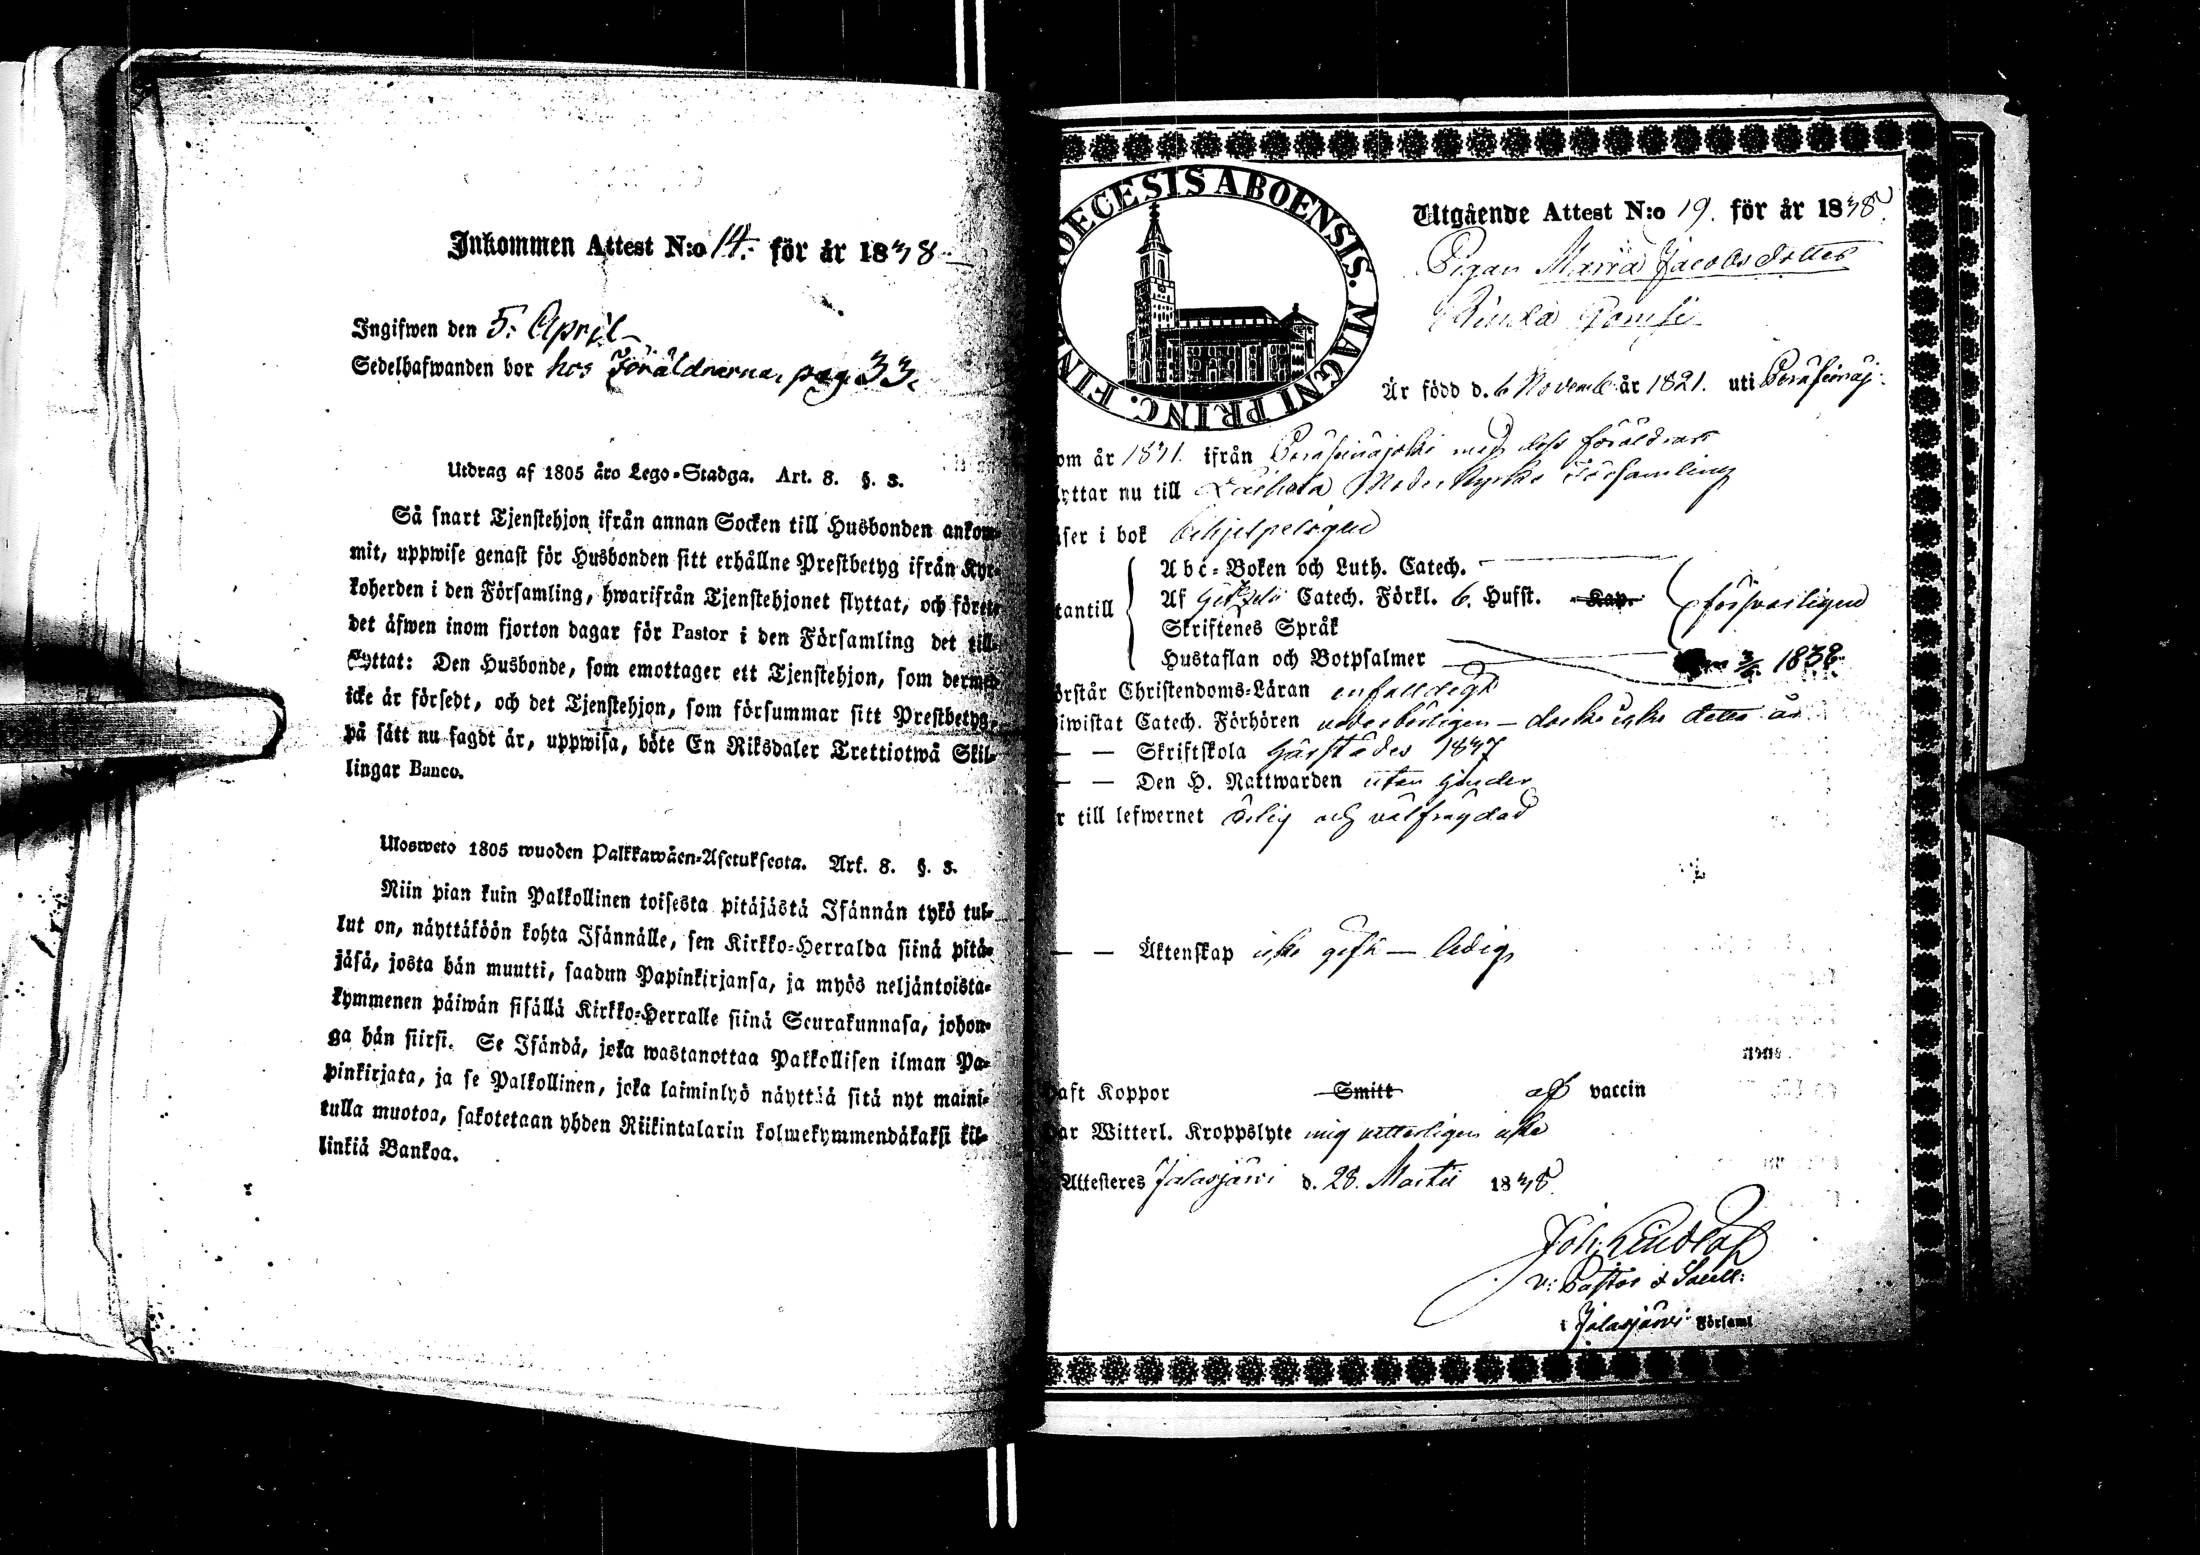 Inkommen Attest N:o 14. för år 1838
Ingifwen den 5. April
Sedelhafwanden bor hos Föräldrarna, pag. 33.
Utdrag af 1805 åro Lego-Stadga. Art. 8. §. 3.
Så snart Tjenstehjon ifrån annan Socken till Husbonden ankom-
mit, uppwise genast för Husbonden sitt erhållne Prestbetyg ifrån Kyr-
koherden i den Församling, hwarifrån Tjenstehjonet flyttat, och förete
det äfwen inom fjorton dagar för Pastor i den Församling det till-
flyttat: Den Husbonde, som emottager ett Tjenstehjon, som dermed
icke är försedt, och det Tjenstehjon, som försummar sitt Prestbetyg,
på sätt nu sagdt är, uppwisa, böte En Riksdaler Trettiotwå Skil-
lingar Banco.
Ulosweto 1805 wuoden Palkkawäen-Asetuksesta. Art. 8. §. 3.
Niin pian kuin Palkollinen toisesta pitäjästä Isännän tykö tul-
lut on, näyttäköön kohta Isännälle, sen Kirkko-Herralda siinä pitä-
jäsä, josta hän muutti, saadun Papinkirjansa, ja myös neljäntoista-
kymmenen päiwän sisällä Kirkko-Herralle siinä Seurakunnasa, johon-
ga hän siirsi. Se Isändä, joka wastanottaa Palkollisen ilman Pa-
pinkirjata, ja se Palkollinen, joka laiminlyö näyttää sitä nyt maini-
tulla muotoa, sakotetaan yhden Riikintalarin kolmekymmendäkaksi kil-
linkiä Bankoa.
DIOECESIS ABOENSIS. MAGNI PRINC. FINL
Utgående Attest N:o 19. för år 1838.
Pigan Maria Jacobsdotter
Är född d. 6 Novemb. år 1821. uti Peräseinäj.
om år 1831. ifrån Peräseinäjoki med dess föräldrar
lyttar nu till Laihela Moderkyrko församling
äser i bok behjelpeligen
tantill
Abc-Boken och Luth. Catech.
Af Catech. Förkl. 6. Husst. Kap.
försvarligen
Skriftenes Språk
Hustaflan och Botpsalmer
1838
örstår Christendoms-Läran enfalldigt
iwistat Catech. Förhören vederbörligen – docke icke detta år
— — Skriftskola härstädes 1837
— — Den H. Nattwarden utan hinder
r till lefwernet ärlig och välfrägdad
— — Äktenskap icke gift — ledig
aft Koppor Smitt af vaccin
ar Witterl. Kroppslyte mig vetterligen icke
Attesteres Jalasjärvi d. 28. Martii 1838.
Joh. Lindelöf
v: Pastor
i Jalasjärvi Församl